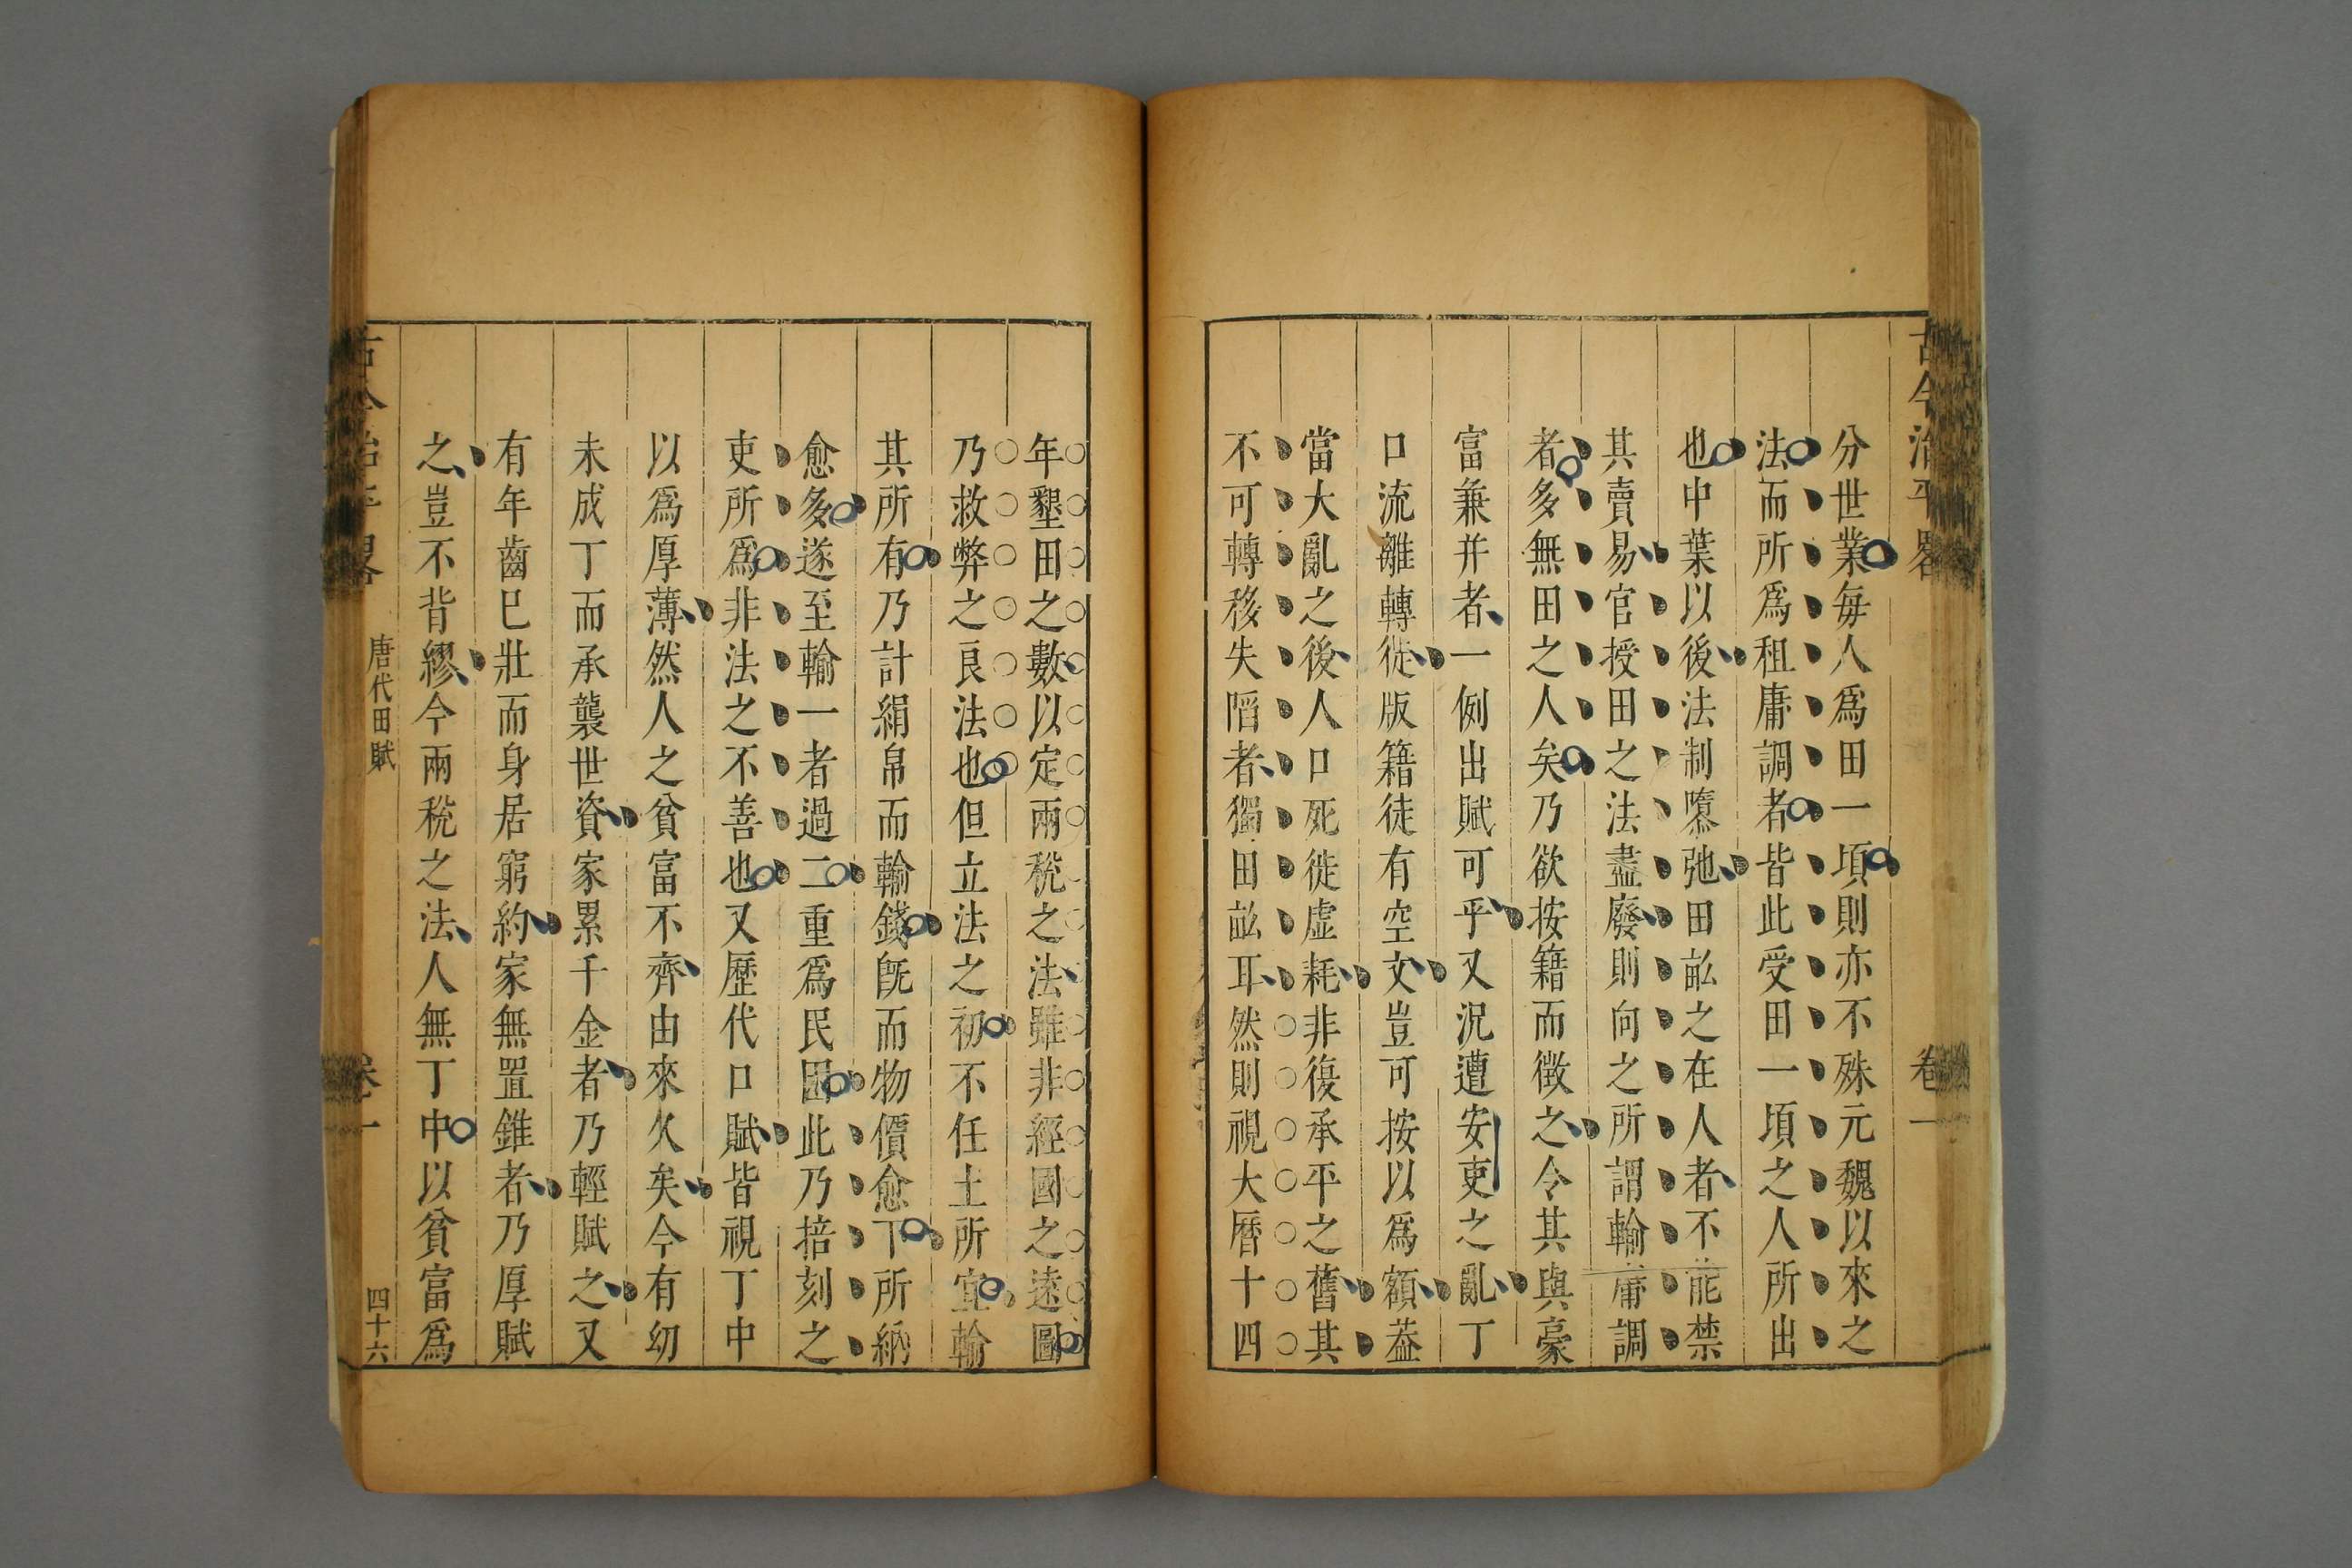 古今治平畧
卷一
分世業每人爲田一頃則亦不殊元魏以來之
法而所爲租庸調者皆此受田一頃之人所出
也中葉以後法制隳弛田畝之在人者不能禁
其賣易官授田之法盡廢則向之所謂輸庸調
者多無田之人矣乃欲按籍而徵之令其與豪
富兼并者一例出賦可乎又況遭安吏之亂丁
口流離轉徙版籍徒有空文豈可按以爲額葢
當大亂之後人口死徙虛耗非復承平之舊其
不可轉移失䧟者獨田畝耳然則視大曆十四
年墾田之數以定兩稅之法雖非經國之遠圖
乃救弊之良法也但立法之初不任土所宜輸
其所有乃計絹帛而輸錢旣而物價愈下所納
愈多遂至輸一者過二重爲民困此乃掊刻之
吏所爲非法之不善也又歷代口賦皆視丁中
以爲厚薄然人之貧富不齊由來久矣今有幼
未成丁而承襲世資家累千金者乃輕賦之又
有年齒巳壯而身居窮約家無置錐者乃厚賦
之豈不背繆今兩稅之法人無丁中以貧富爲
古今治平畧
唐代田賦
卷一
四十六